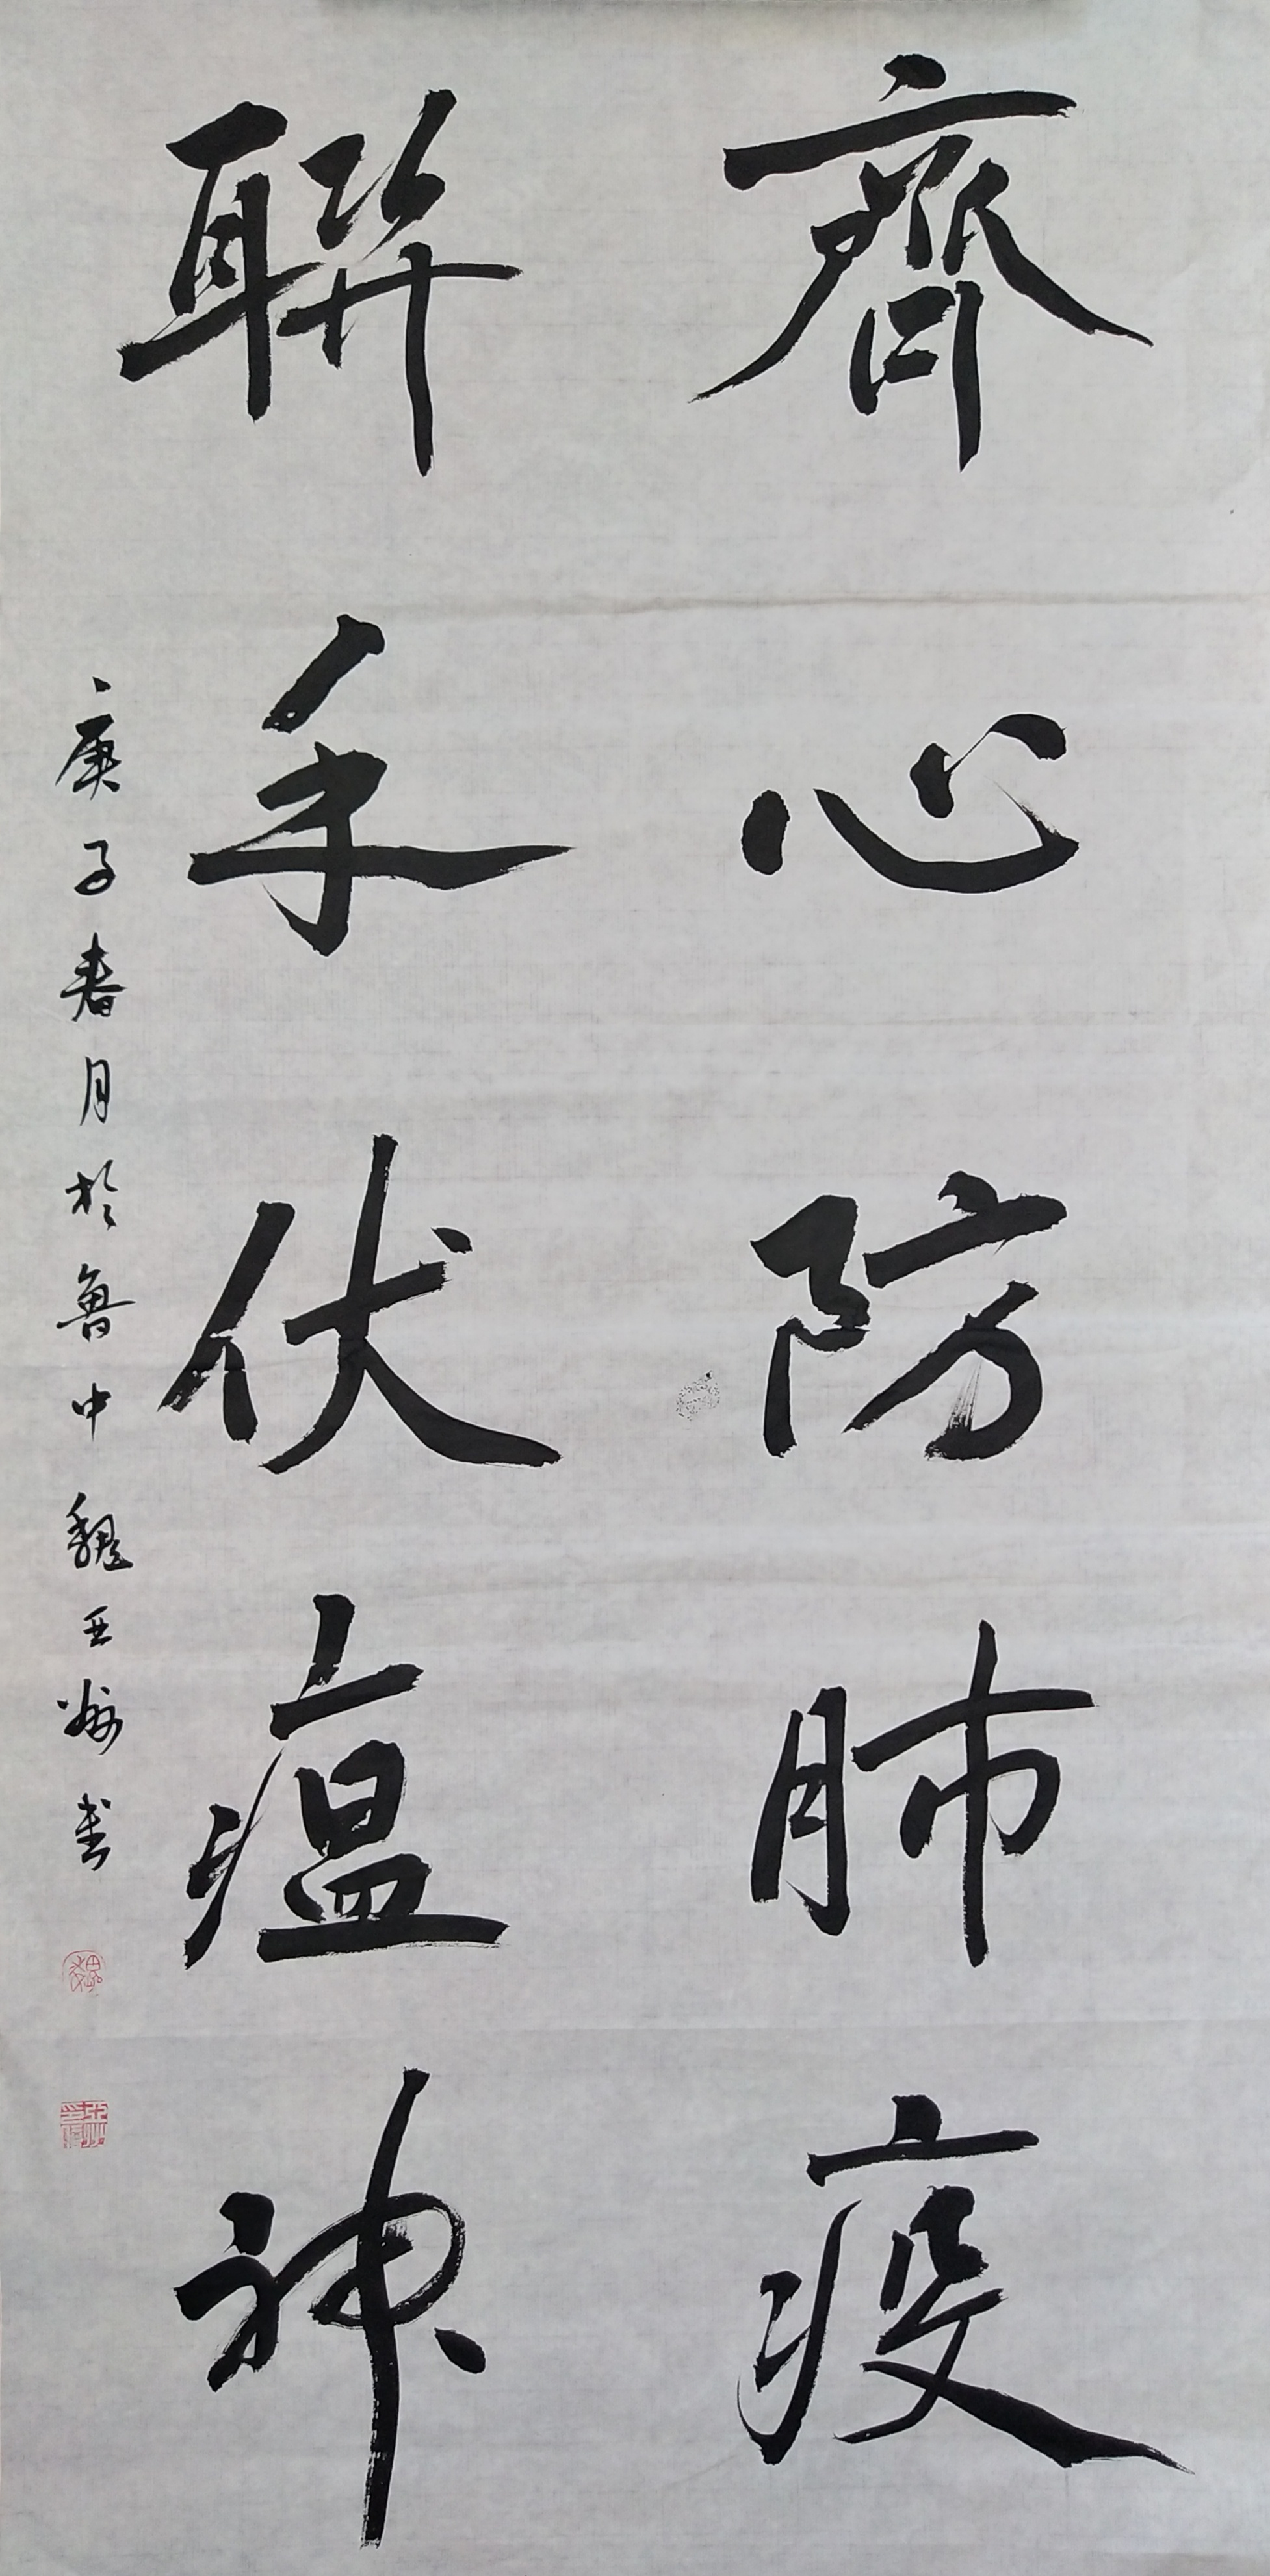 齊心防肺疫
聯手伏瘟神
庚子春月於魯中魏亞州書